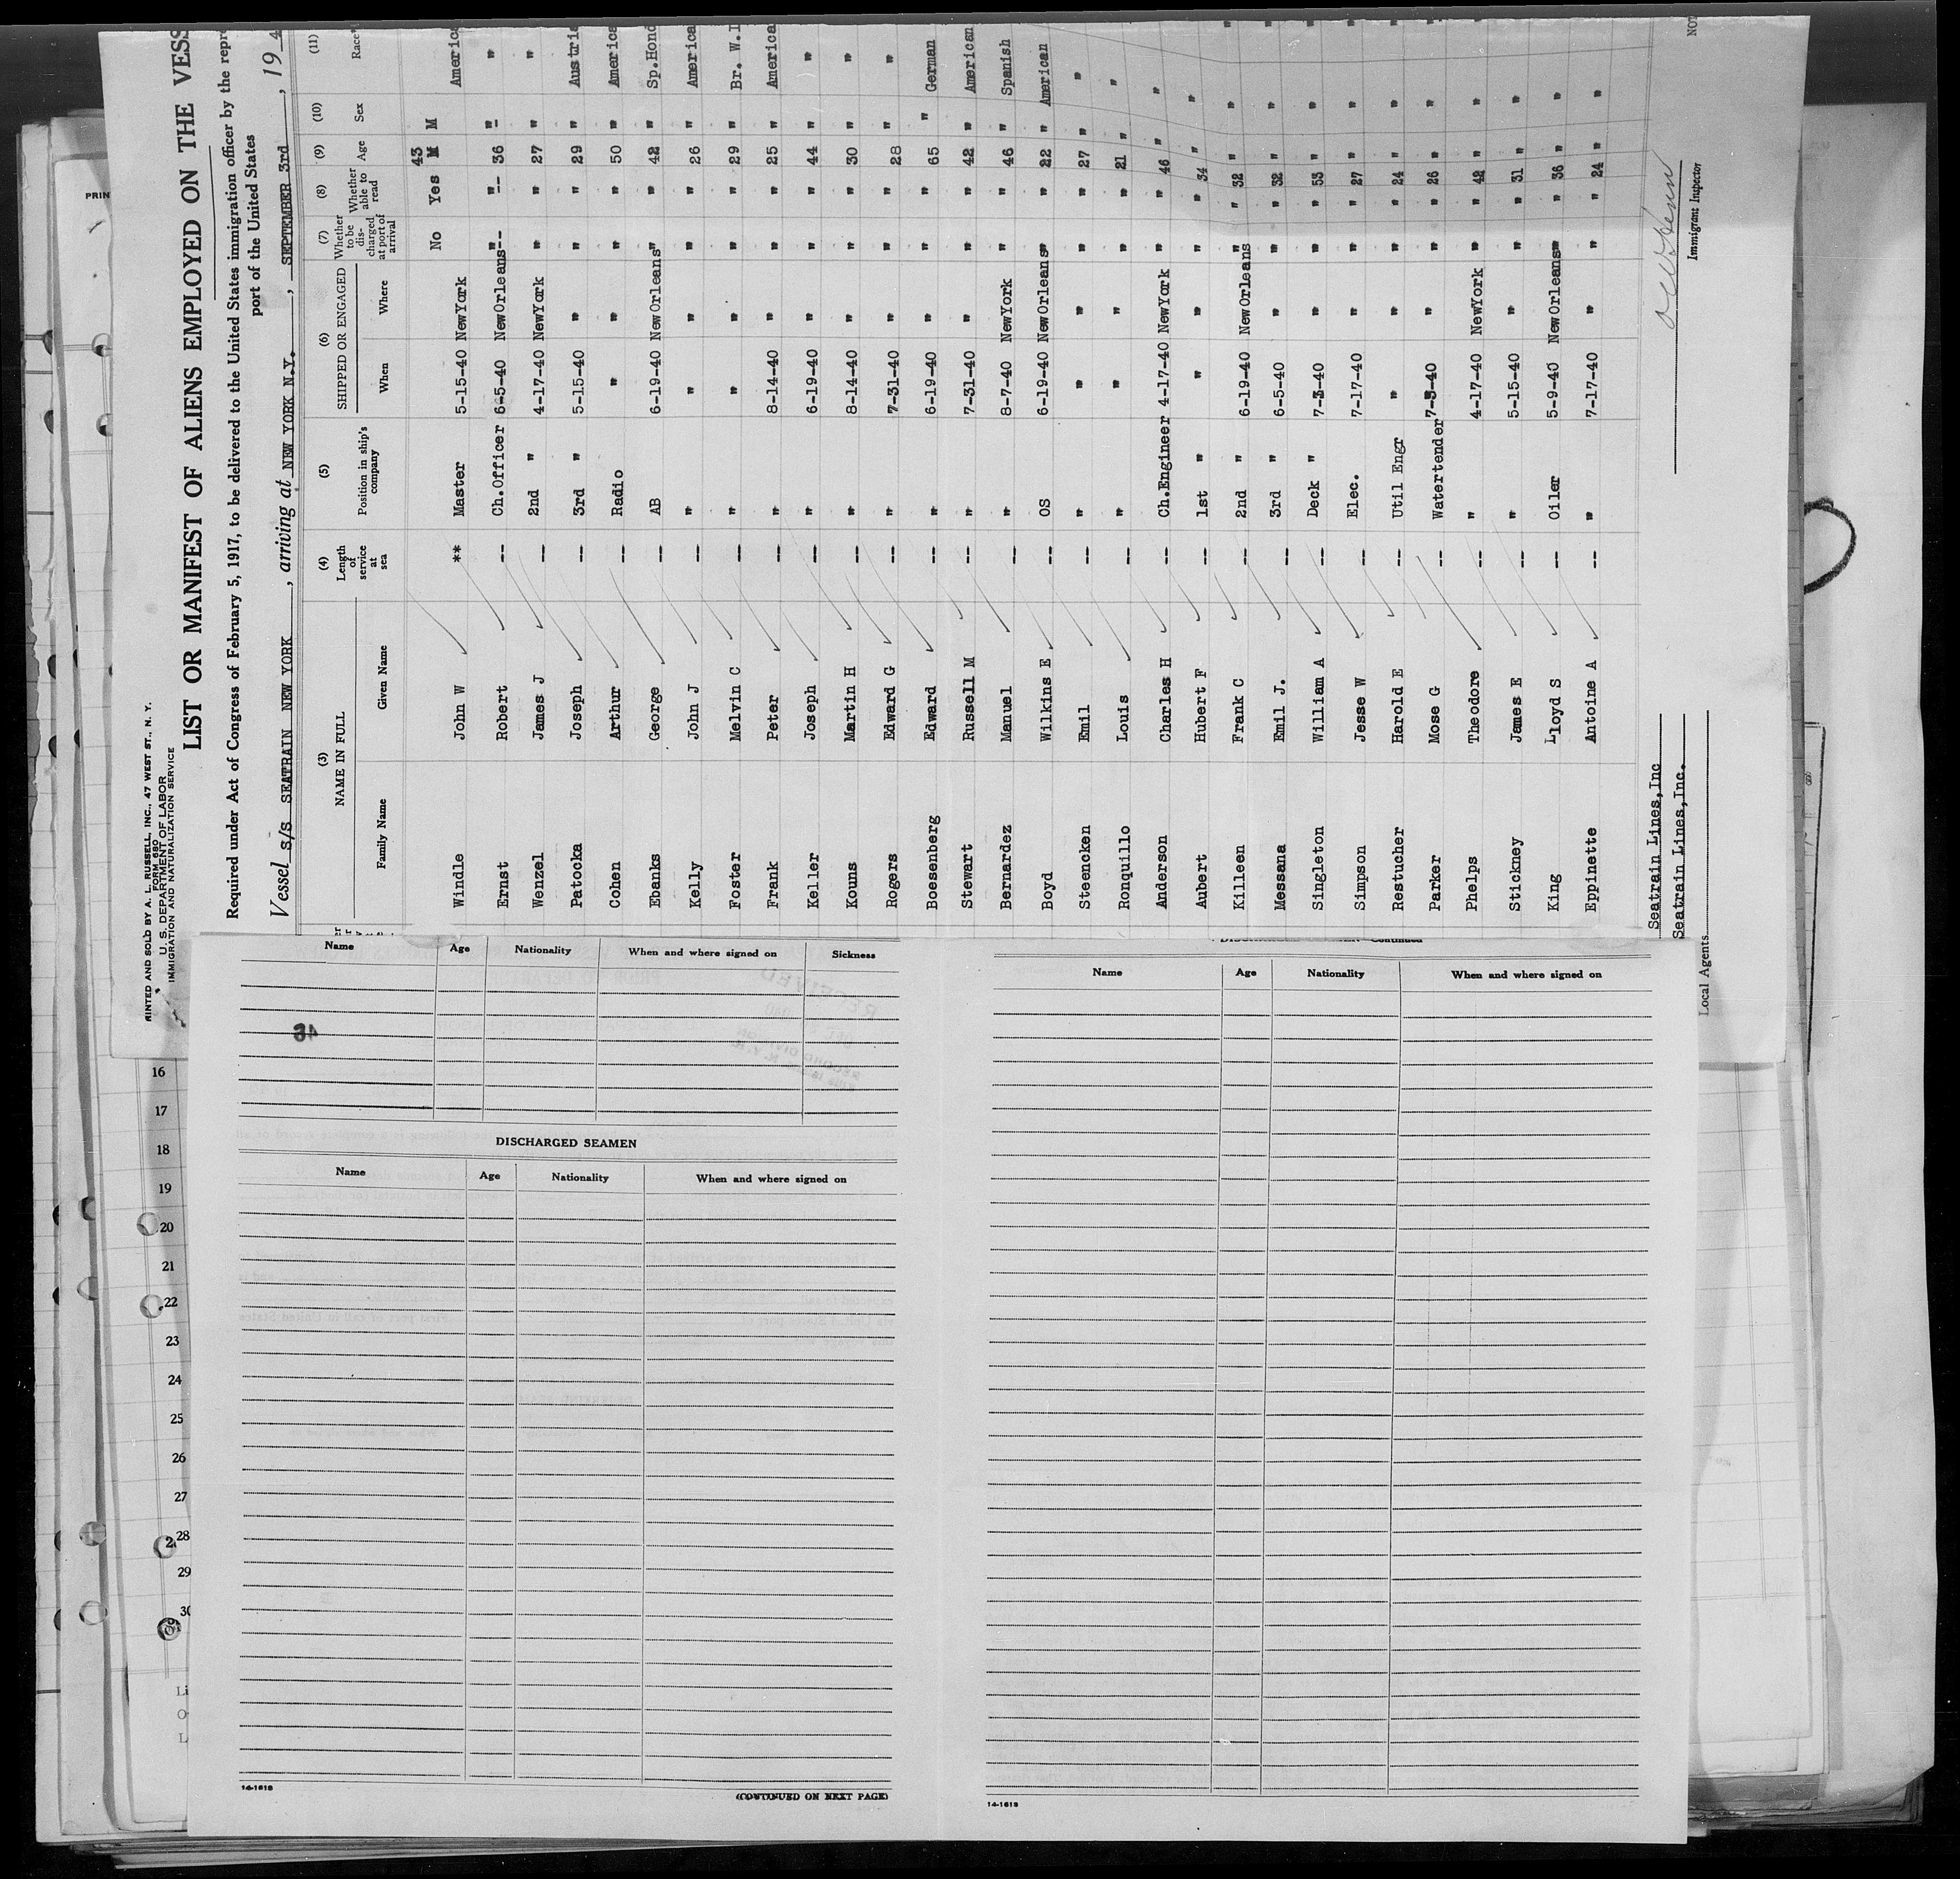 PRINTED AND SOLD BY A. L. RUSSELL, INC., 47 WEST ST., N. Y.
FORM 680
U. S. DEPARTMENT OF LABOR
IMMIGRATION AND NATURALIZATION SERVICE
LIST OR MANIFEST OF ALIENS EMPLOYED ON THE VESS
Required under Act of Congress of February 5, 1917, to be delivered to the United States immigration officer by the repre
port of the United States
Vessel S/S SEATRAIN NEW YORK , arriving at NEW YORK N.Y. , SEPTEMBER 3rd , 19 4
(3) (4) (5) (6) (7) (8) (9) (10) (11)
NAME IN FULL Length of service at sea Position in ship's company SHIPPED OR ENGAGED Whether to be discharged at port of arrival Whether able to read Age Sex Race*
Family Name Given Name When Where
43
Windle John W ** Master 5-15-40 NewYork No Yes M M America
Ernst Robert -- Ch.Officer 6-5-40 NewOrleans-- " "-- 36 "- "
Wenzel James J -- 2nd " 4-17-40 NewYork " " 27 " "
Patocka Joseph -- 3rd " 5-15-40 " " " 29 " Austria
Cohen Arthur -- Radio " " " " 50 " America
Ebanks George -- AB 6-19-40 NewOrleans " " 42 " Sp.Hond
Kelly John J -- " " " " " 26 " America
Foster Melvin C -- " " " " " 29 " Br. W.I
Frank Peter -- " 8-14-40 " " " 25 " America
Keller Joseph -- " 6-19-40 " " " 44 " "
Kouns Martin H -- " 8-14-40 " " " 30 " "
Rogers Edward G -- " 7-31-40 " " " 28 " "
Boesenberg Edward -- " 6-19-40 " " " 65 " German
Stewart Russell M -- " 7-31-40 " " " 42 " American
Bernardez Manuel -- " 8-7-40 NewYork " " 46 " Spanish
Boyd Wilkins E -- OS 6-19-40 NewOrleans " " 22 " American
Steencken Emil -- " " " " " 27 " "
Ronquillo Louis -- " " " " " 21 " "
Anderson Charles H -- Ch.Engineer 4-17-40 NewYork " " 46 " "
Aubert Hubert F -- 1st " " " " " 34 " "
Killeen Frank C -- 2nd " 6-19-40 NewOrleans " " 32 " "
Messana Emil J. -- 3rd " 6-5-40 " " " 32 " "
Singleton William A -- Deck " 7-3-40 " " " 53 " "
Simpson Jesse W -- Elec. 7-17-40 " " " 27 " "
Restucher Harold E -- Util Engr " " " " 24 " "
Parker Mose G -- Watertender 7-3-40 " " " 26 " "
Phelps Theodore -- " 4-17-40 NewYork " " 42 " "
Stickney James E -- " 5-15-40 " " " 31 " "
King Lloyd S -- Oiler 5-9-40 NewOrleans " " 36 " "
Eppinette Antoine A -- " 7-17-40 " " " 24 " "
Seatrain Lines,Inc
Seatrain Lines,Inc.
Local Agents
Immigrant Inspector
NOT
PRIN
Name Age Nationality When and where signed on Sickness
DISCHARGED SEAMEN
Name Age Nationality When and where signed on
14-1618
(CONTINUED ON NEXT PAGE)
DISCHARGED SEAMEN—Continued
Name Age Nationality When and where signed on
14-1618
16
17
18
19
20
21
22
23
24
25
26
27
28
29
30
Li
O
L